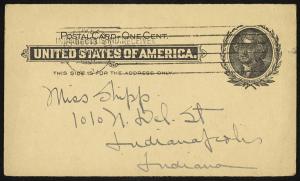 POSTAL CARD - ONE CENT.
UNITED STATES OF AMERICA.
THIS SIDE IS FOR THE ADDRESS ONLY.
Miss Shipp
1010 N. Del. St
Indianapolis
Indiana